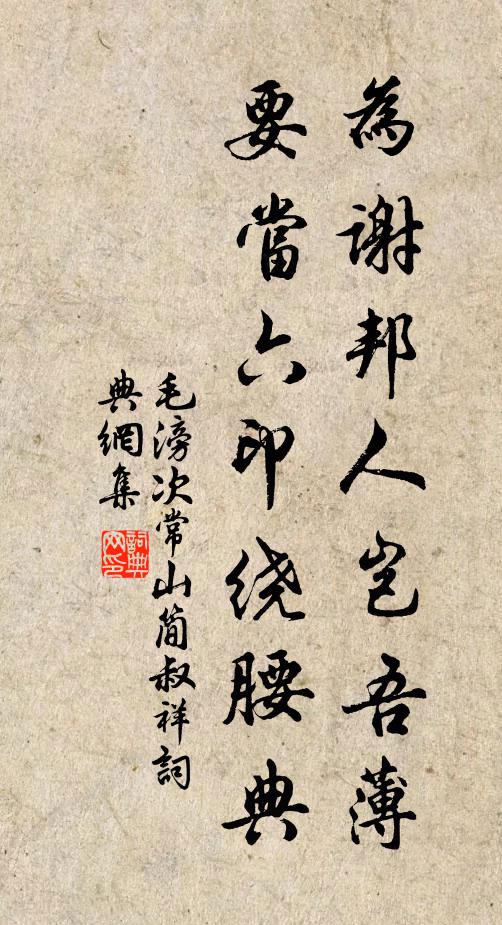 為謝邦人岂吾薄
要當六印绕腰典
毛滂次常山簡叔祥詞
典網集
詞典网印